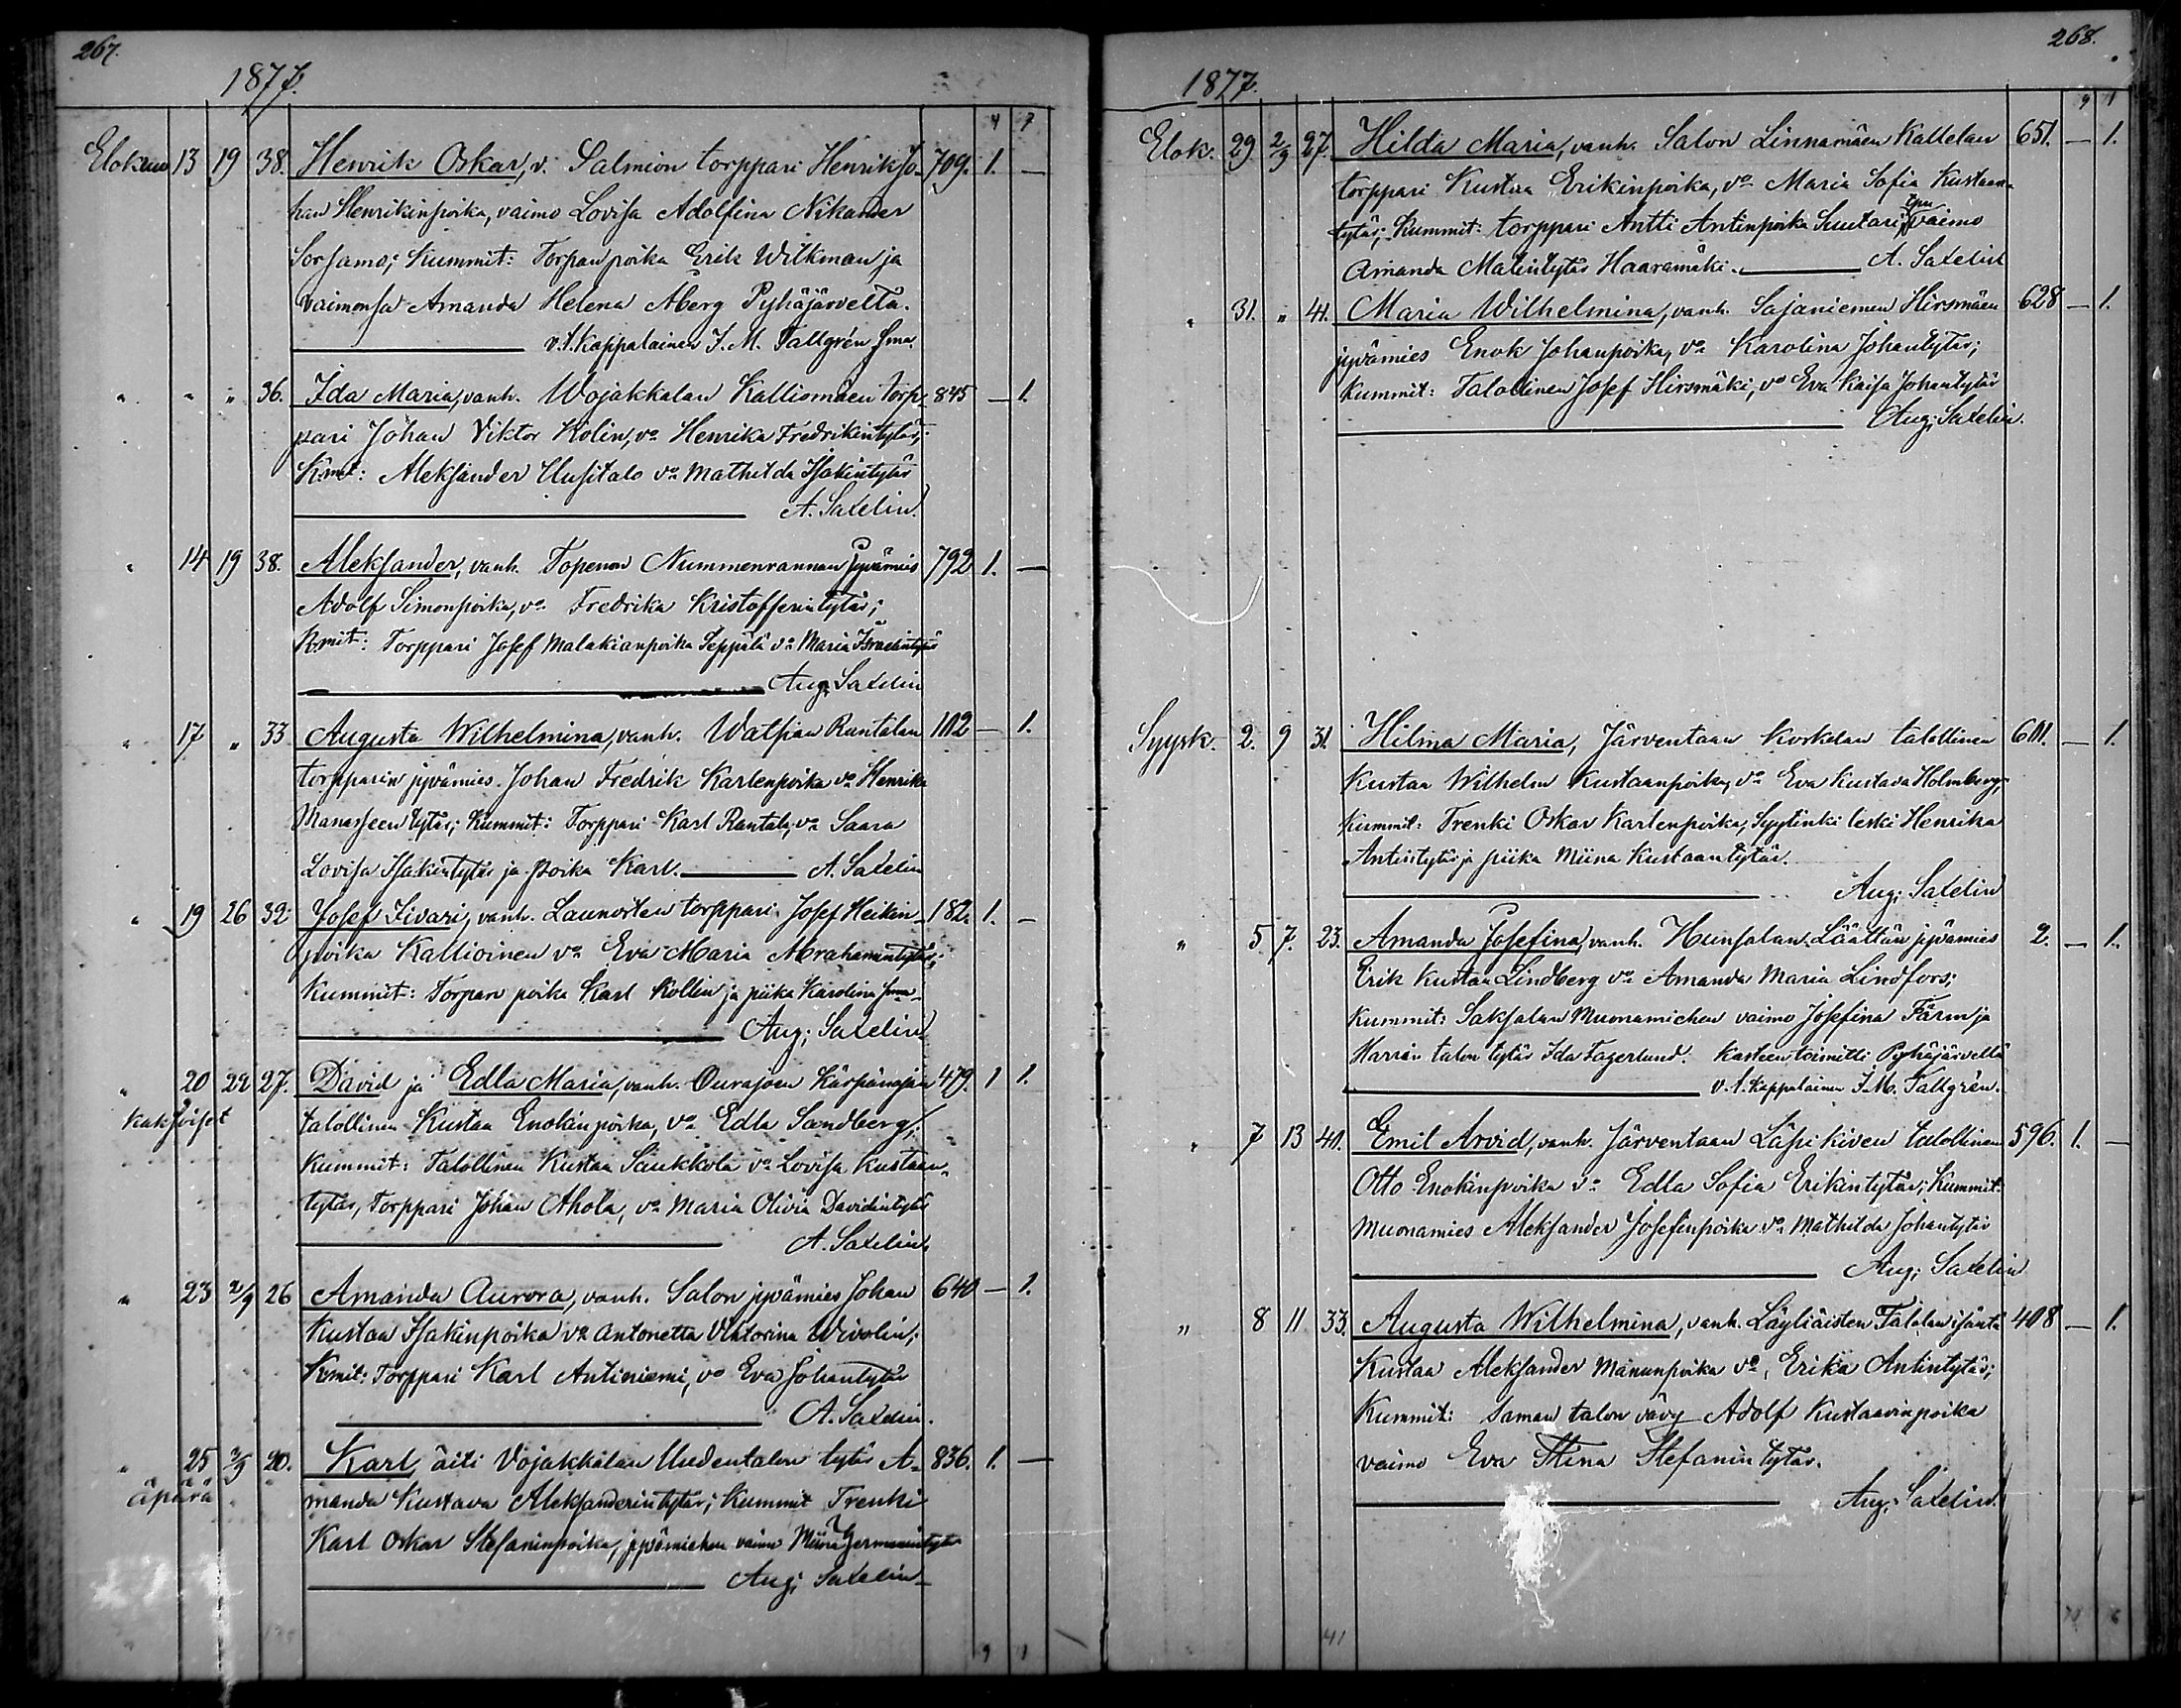 267.
1877.
4 7
Elokuu 13 19 38. Henrik Oskar, v. Salmion torppari Henrik Jo- 709. 1. —
han Henrikinpoika, vaimo Lovisa Adolfina Nikander
Sorsamo; Kummit: Torpanpoika Erik Wilkman ja
vaimonsa Amanda Helena Åberg Pyhäjärveltä.
v.t. Kappalainen J. M. Tallgrén
" " " 36. Ida Maria, vanh. Wojakkalan Kalliomäen torp- 845 — 1.
pari Johan Viktor Kolin, vo Henrika Fredrikintytär;
Kmit: Aleksander Uusitalo vo Mathilda Isakintytär
A. Saxelin.
" 14 19 38. Aleksander, vanh. Topenon Nummenrannan jyvämies 792 1. —
Adolf Simonpoika, vo Fredrika Kristofferintytär;
Kmit: Torppari Josef Malakianpoika Seppälä vo Maria Israelintytär
Aug. Saxelin
" 17 " 33 Augusta Wilhelmina, vanh. Watsian Rantalan 1102 — 1.
torpparin jyvämies Johan Fredrik Karlenpoika vo Henrika
Manasseentytär; Kummit: Torppari Karl Rantala, vo Saara
Lovisa Isakintytär ja poika Karl. A. Saxelin
" 19 26 32 Josef Iivari, vanh. Launosten torppari Josef Heikin- 182. 1. —
poika Kallioinen vo Eva Maria Abrahamintytär;
Kummit: Torpan poika Karl Kollin ja piika Karolina
Aug. Saxelin
" 20 22 27. David ja Edla Maria, vanh. Ourajoen Kärpänojan 479. 1 1.
kaksoiset talollinen Kustaa Enokinpoika, vo Edla Sandberg;
Kummit: Talollinen Kustaa Saukkola vo Lovisa Kustaan-
tytär, Torppari Johan Ahola, vo Maria Olivia Davidintytär
A. Saxelin
" 23 2/9 26 Amanda Aurora, vanh. Salon jyvämies Johan 640 — 1.
Kustaa Isakinpoika vo Antonetta Viktorina Wivolin;
Kmit: Torppari Karl Antiniemi, vo Eva Johantytär
A. Saxelin.
" 25 2/9 20. Karl, äiti Vojakkalan Uudentalon tytär A- 836. 1. —
äpärä manda Kustava Aleksanderintytär; Kummit Trenki
Karl Oskar Stefaninpoika, jyvämiehen vaimo Miina Hermanintytär
Aug. Saxelin
9 11
268.
1877.
9 1
Elok. 29 2/9 27. Hilda Maria, vanh. Salon Linnamäen Kallelan 651. — 1.
torppari Kustaa Erikinpoika, vo Maria Sofia Kustaan-
tytär; Kummit: torppari Antti Antinpoika Suutari, vaimo
Amanda Matintytär Haaramäki. A. Saxelin
" 31. " 41. Maria Wilhelmina, vanh. Sajaniemen Hirsmäen 628 — 1.
jyvämies Enok Johanpoika, vo Karolina Johantytär;
Kummit: Talollinen Josef Hirsmäki, vo Eva Kaisa Johantytär
Aug. Saxelin.
Syysk. 2. 9 31. Hilma Maria, Järventaan Koskelan talollinen 601. — 1.
Kustaa Wilhelm Kustaanpoika, vo Eva Kustava Holmberg;
Kummit: Trenki Oskar Karlenpoika, Syytinki leski Henrika
Antintytär ja piika Miina Kustaantytär.
Aug. Saxelin
" 5 7. 23. Amanda Josefina, vanh. Hunsalan Läättän jyvämies 2. — 1.
Erik Kustaa Lindberg vo Amanda Maria Lindfors;
Kummit: Saksalan Muonamiehen vaimo Josefina Färm ja
Harrin talon tytär Ida Fagerlund. Kasteen toimitti Pyhäjärvellä
v.t. Kappalainen J.M. Tallgrén.
" 7 13 40. Emil Arvid, vanh. Järventaan Läpikiven talollinen 596. 1. —
Otto Enokinpoika vo Edla Sofia Erikintytär; Kummit:
Muonamies Aleksander Josefinpoika vo Mathilda Johantytär
Aug. Saxelin
" 8 11 33. Augusta Wilhelmina, vanh. Läyliäisten Talolan isäntä 408 — 1.
Kustaa Aleksander Manunpoika vo, Erika Antintytär;
Kummit: Saman talon vävy Adolf Kustaavinpoika
vaimo Eva Stina Stefanintytär.
Aug. Saxelin.
41